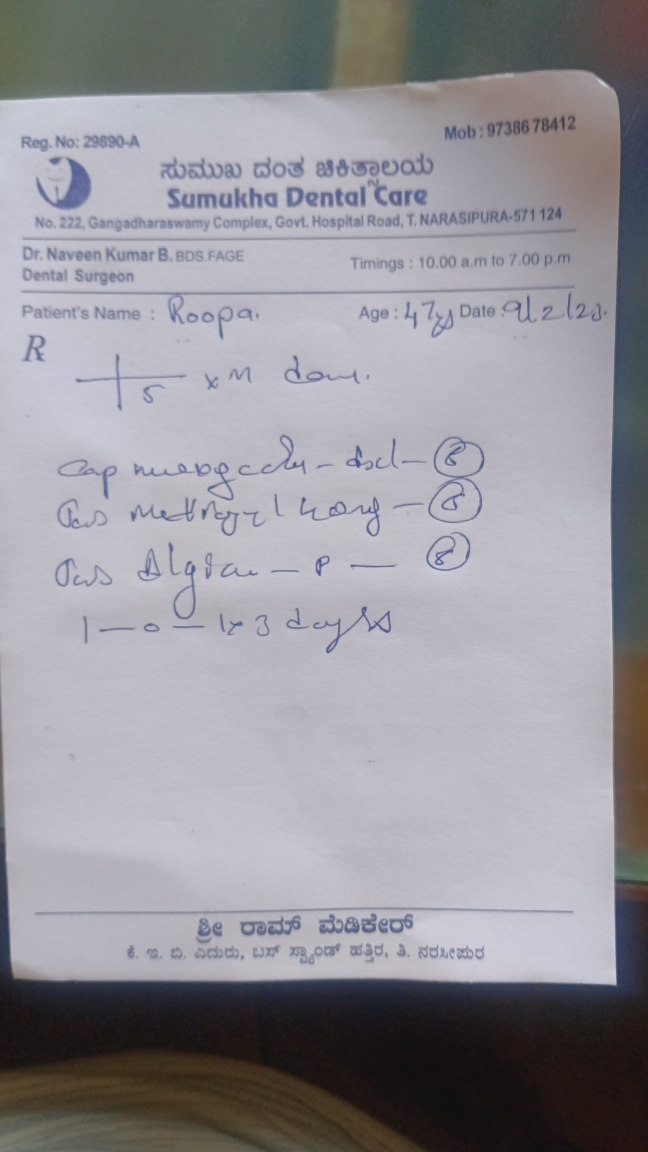 Reg. No: 29890-A
Mob : 97386 78412
ಸುಮುಖ ದಂತ ಚಿಕಿತ್ಸಾಲಯ
Sumukha Dental Care
No. 222, Gangadharaswamy Complex, Govt. Hospital Road, T. NARASIPURA-571 124
Dr. Naveen Kumar B. BDS.FAGE
Dental Surgeon
Timings : 10.00 a.m to 7.00 p.m
Patient's Name : Roopa.
Age : 47 Date : 9/2/23.
R
5 x
Cap
400mg
P
1 — 0 — 1 x 3 days
ಶ್ರೀ ರಾಮ್ ಮೆಡಿಕೇರ್
ಕೆ. ಇ. ಬಿ. ಎದುರು, ಬಸ್ ಸ್ಟ್ಯಾಂಡ್ ಹತ್ತಿರ, ತಿ. ನರಸೀಪುರ